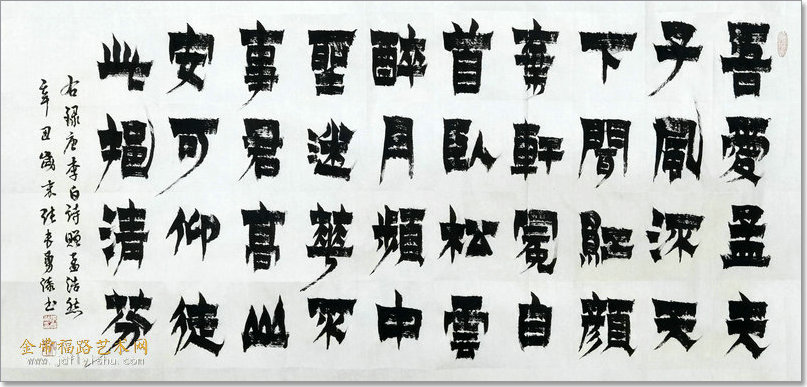 吾愛孟夫
子風流天
下聞紅顏
棄軒冕白
首臥松雲
醉月頻中
聖迷華不
事君高山
安可仰徒
此挹清芬
右録唐李白詩贈孟浩然
辛丑歲末張長勇書
金帝福路艺术网
www.jdflyishu.com